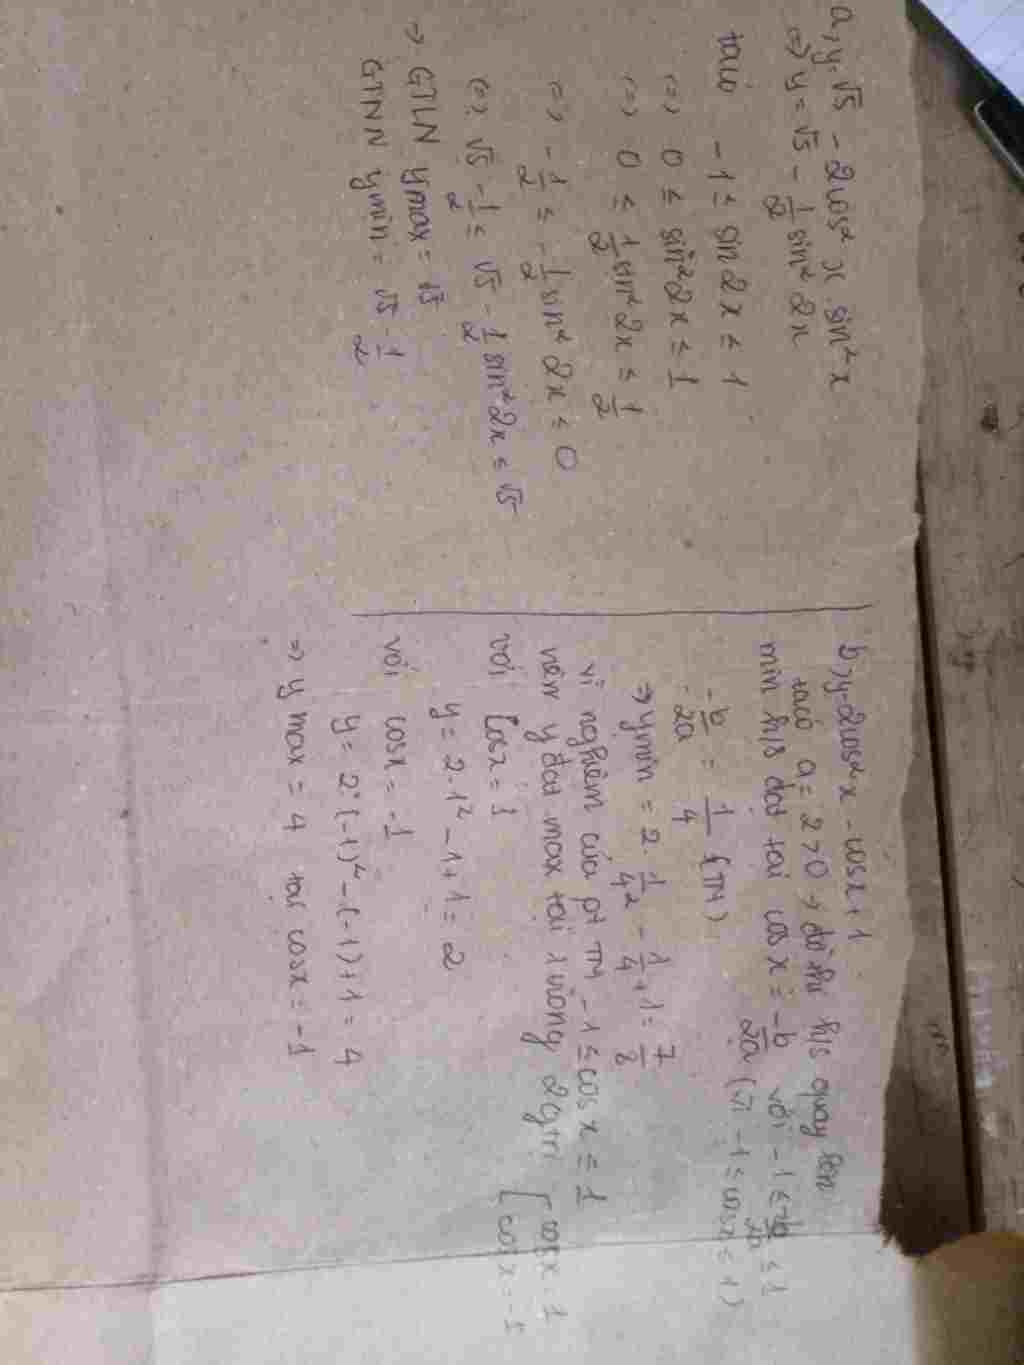 a, y = √5 - 2cos²x sin²x
=> y = √5 - 1/2 sin²2x
ta có -1 ≤ sin2x ≤ 1
<=> 0 ≤ sin²2x ≤ 1
<=> 0 ≤ 1/2 sin²2x ≤ 1/2
<=> -1/2 ≤ -1/2 sin²2x ≤ 0
<=> √5 - 1/2 ≤ √5 - 1/2 sin²2x ≤ √5
=> GTLN ymax = √5
GTNN ymin = √5 - 1/2
b, y = 2cos²x - cosx + 1
ta có a = 2 > 0 → đồ thị h/s quay lên
min h/s đạt tại cos x = -b/2a với -1 ≤ -b/2a ≤ 1
(vì -1 ≤ cosx ≤ 1)
-b/2a = 1/4 (TM)
=> ymin = 2·1/4² - 1/4 + 1 = 7/8
vì nghiệm của pt TM -1 ≤ cosx ≤ 1
nên y đạt max tại 1 trong 2 gtrị [cosx = 1
[cosx = -1
với cosx = 1
y = 2·1² - 1 + 1 = 2
với cosx = -1
y = 2·(-1)² - (-1) + 1 = 4
=> y max = 4 tại cosx = -1